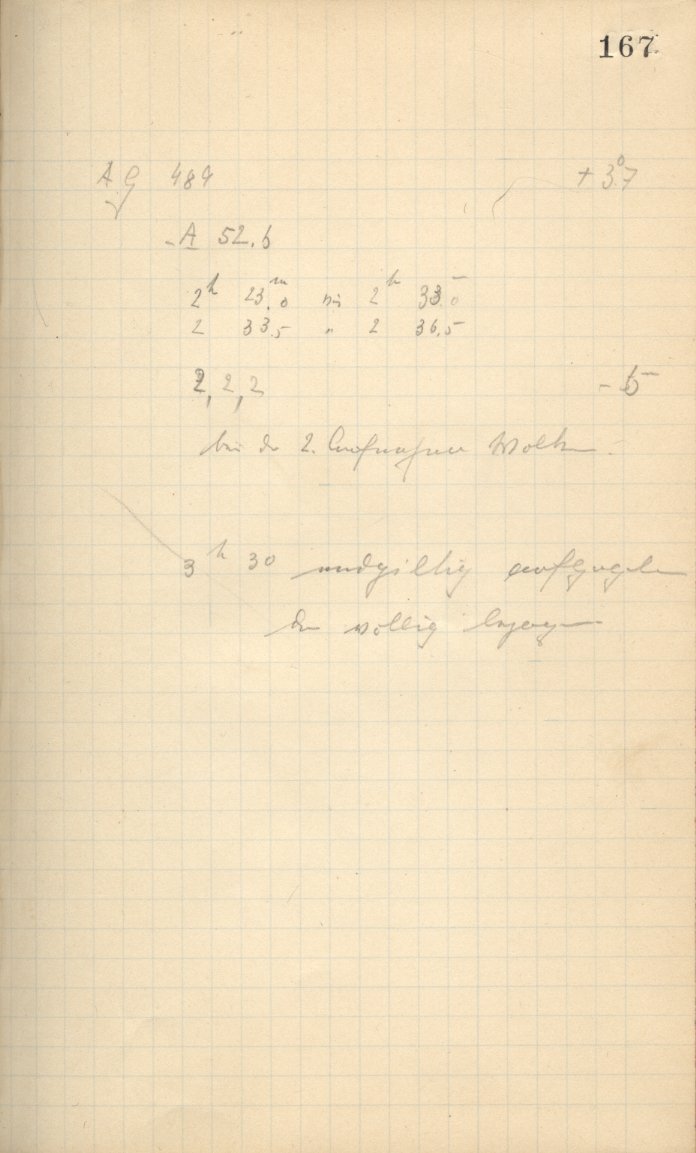 167
A G 489 + 3°.7
A 52.b
2h 23.0m bis 2h 33.0
2 33.5 " 2 36.5
2, 2, 2 - 5
bei der 2. Aufnahme Wolken.
3h 30 endgiltig aufgegeben
da völlig bezogen